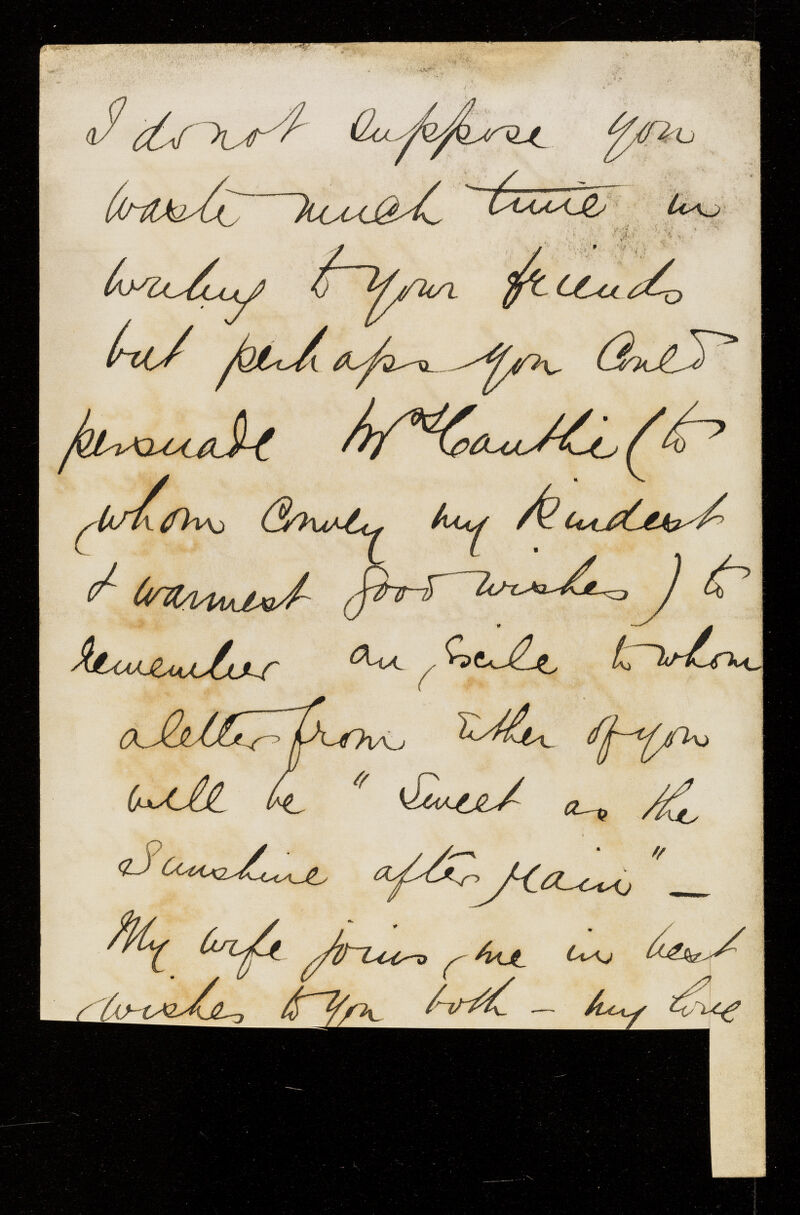 I do not suppose you
waste much time in
writing to your friends
but perhaps you Could
persuade Mrs (to
whom Convey my Kindest
& warmest good wishes) to
remember an Exile to whom
a letter from Either of you
will be "Sweet as the
Sunshine after rain" —
My wife joins me in best
wishes to you both — my love